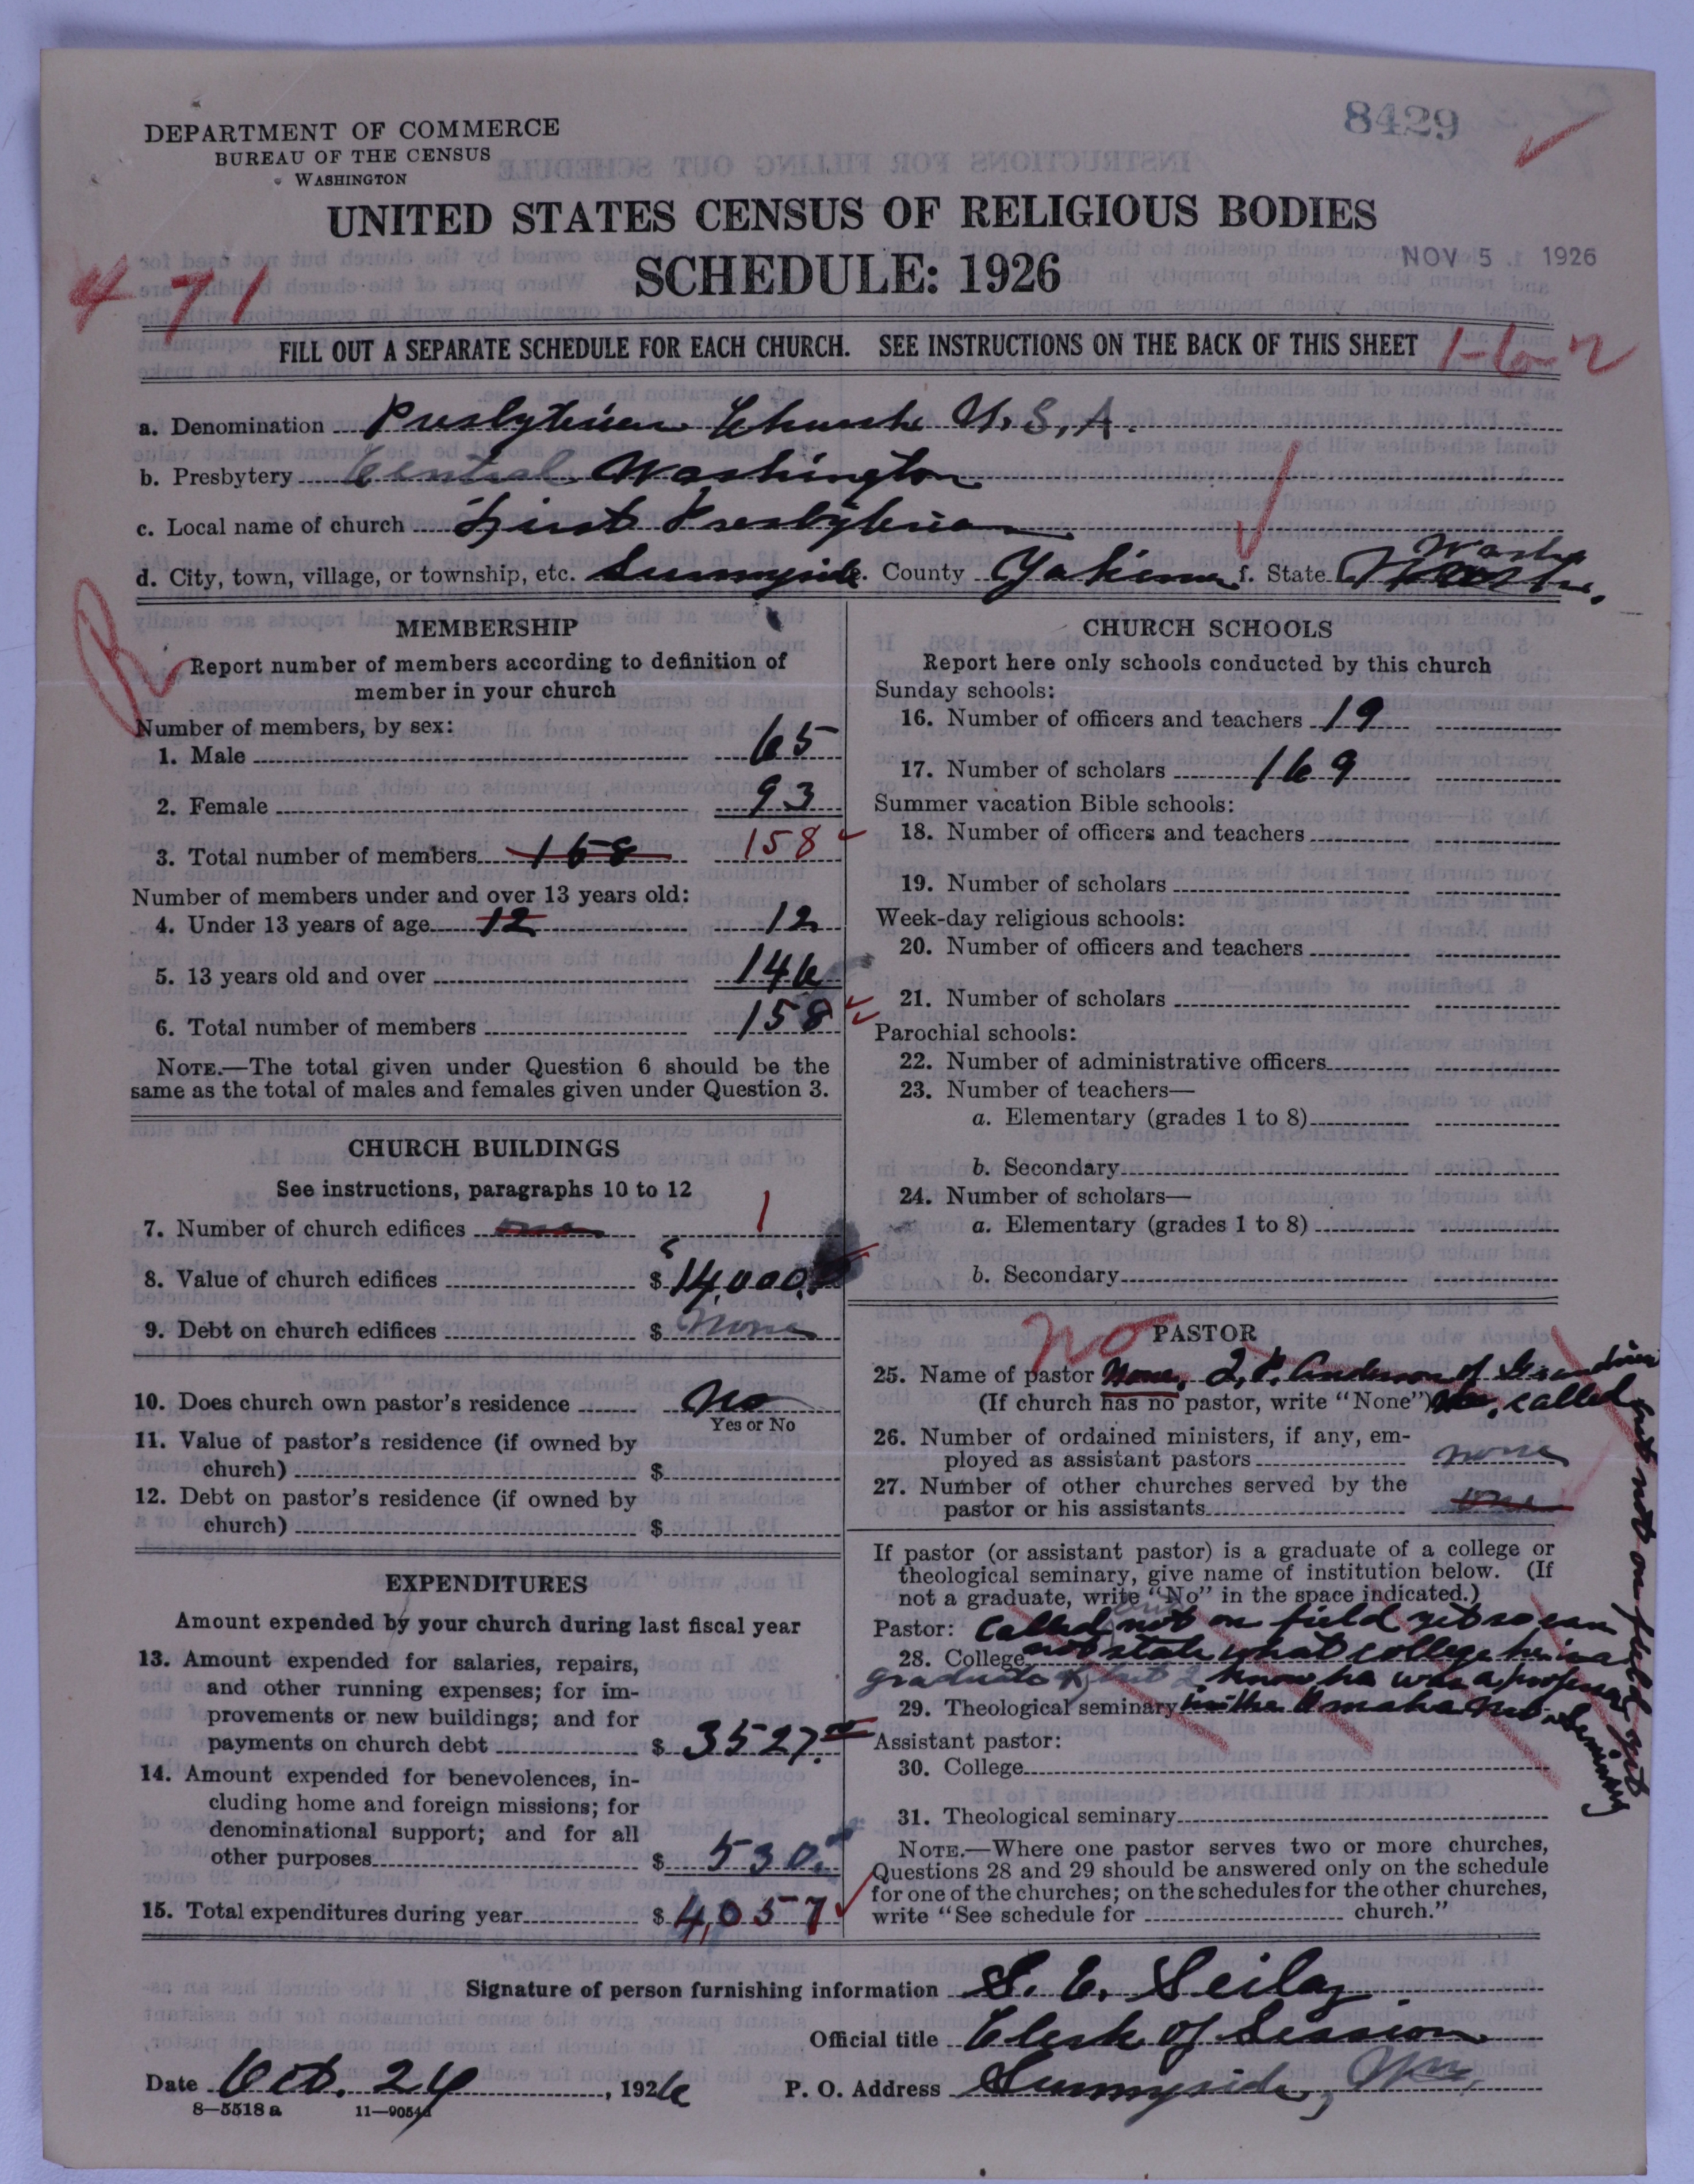 8429
DEPARTMENT OF COMMERCE
BUREAU OF THE CENSUS
WASHINGTON
UNITED STATES CENSUS OF RELIGIOUS BODIES
NOV 5 1926
SCHEDULE: 1926
471
FILL OUT A SEPARATE SCHEDULE FOR EACH CHURCH. SEE INSTRUCTIONS ON THE BACK OF THIS SHEET
1-6-2
a. Denomination Presbyterian Church U.S.A.
b. Presbytery Central Washington
c. Local name of church First Presbyterian
d. City, town, village, or township, etc. Sunnyside. County Yakima f. State Wash.
R
MEMBERSHIP
Report number of members according to definition of
member in your church
Number of members, by sex:
1. Male 65
2. Female 93
3. Total number of members 158 158
Number of members under and over 13 years old:
4. Under 13 years of age 12 12
5. 13 years old and over 146
6. Total number of members 158
NOTE.—The total given under Question 6 should be the
same as the total of males and females given under Question 3.
CHURCH BUILDINGS
See instructions, paragraphs 10 to 12
7. Number of church edifices one 1
8. Value of church edifices $14,000.
9. Debt on church edifices $ none
10. Does church own pastor's residence No
Yes or No
11. Value of pastor's residence (if owned by
church) $
12. Debt on pastor's residence (if owned by
church) $
EXPENDITURES
Amount expended by your church during last fiscal year
13. Amount expended for salaries, repairs,
and other running expenses; for im-
provements or new buildings; and for
payments on church debt $ 3527.
14. Amount expended for benevolences, in-
cluding home and foreign missions; for
denominational support; and for all
other purposes $ 530.
15. Total expenditures during year $ 4,057
CHURCH SCHOOLS
Report here only schools conducted by this church
Sunday schools:
16. Number of officers and teachers 19
17. Number of scholars 169
Summer vacation Bible schools:
18. Number of officers and teachers
19. Number of scholars
Week-day religious schools:
20. Number of officers and teachers
21. Number of scholars
Parochial schools:
22. Number of administrative officers
23. Number of teachers—
a. Elementary (grades 1 to 8)
b. Secondary
24. Number of scholars—
a. Elementary (grades 1 to 8)
b. Secondary
No PASTOR
25. Name of pastor None, Anderson of
(If church has no pastor, write "None") called
but not on field yet
26. Number of ordained ministers, if any, em-
ployed as assistant pastors none
27. Number of other churches served by the
pastor or his assistants
If pastor (or assistant pastor) is a graduate of a college or
theological seminary, give name of institution below. (If
not a graduate, write "No" in the space indicated.)
Pastor: called not on field yet so can
28. College not state what college he is a
graduate of but I know he was a professor
29. Theological seminary in the Omaha Seminary
Assistant pastor:
30. College
31. Theological seminary
NOTE.—Where one pastor serves two or more churches,
Questions 28 and 29 should be answered only on the schedule
for one of the churches; on the schedules for the other churches,
write "See schedule for church."
Signature of person furnishing information S. E. Seilaz
Official title Clerk of Session
Date Oct. 24, 1926 P. O. Address Sunnyside, Wn.
8—5518 a 11—9054a